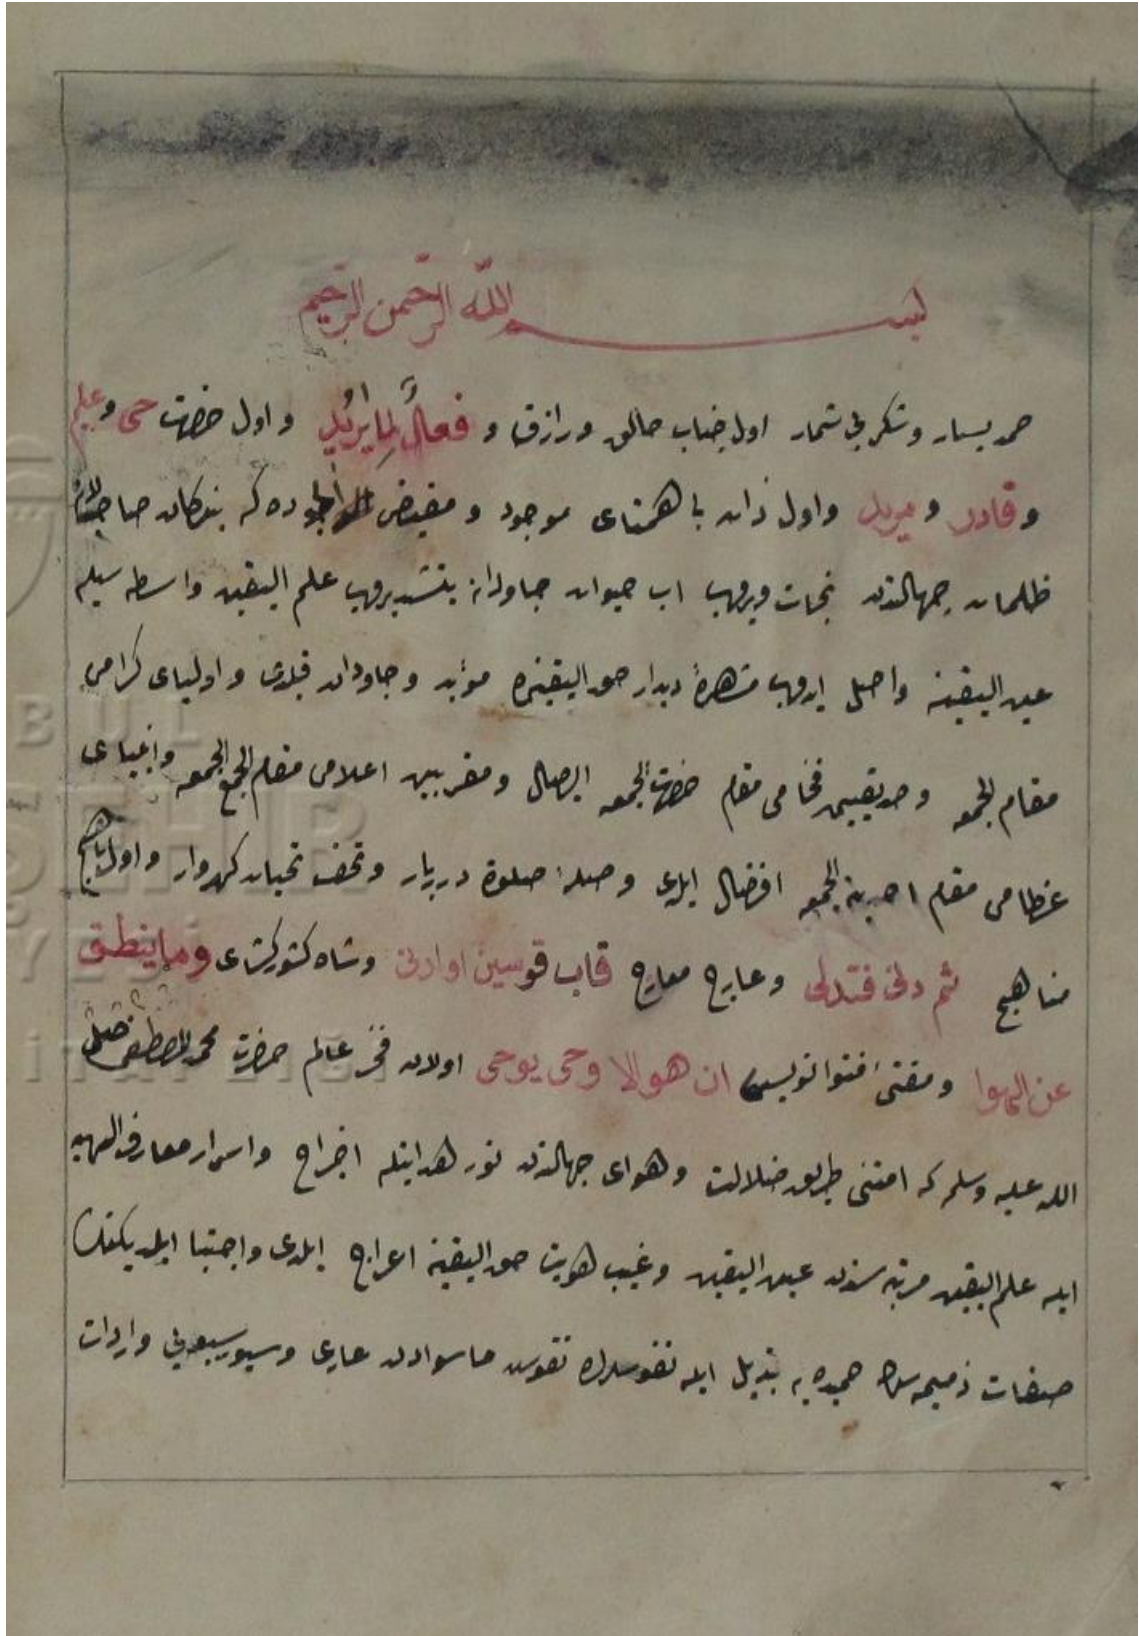 بسم الله الرحمن الرحيم
حمد بسيار وشكر بی شمار اول جناب خالق ورازق و فعالٌ لِما يُريد و اول حضرت حی وعليم
و قادر و مريد و اول ذات با همتای موجود و مفيض الجوده كه بندكان
ظلمات جهالتدن نجات ويروب اب حيوان جاودانه يتشديروب علم اليقين واسطه سيله
عين اليقينه واصل ايدوب مشهرهٔ ديدار حق اليقينده مؤبد و جاودان قيلدی و اولياى كرامی
مقام الجمعه و صديقين فخامی مقام حضرت الجمعه ايصال و مقربين اعلامی مقام الجمع الجمعه وانبياى
عظامی مقام احدية الجمعه افضال ايلدی و صلهٔ صلوة دربار و تحف تحيات كهروار و اول
مناهج ثم دنی فتدلی و عارج معارج قاب قوسين او ادنی و شاه كشور كشاى وما ينطق
عن الهوا و مفتئ فتوا نويس ان هو الا وحی يوحی اولان فخر عالم حضرت محمد المصطفی صلی
الله عليه وسلم كه امتنی طريق ضلالت و هواى جهالتدن نور هدايتله اخراج و اسرار معارف الهيه
ايله علم اليقين مرتبه سندن عين اليقين و غيب هويت حق اليقينه اعراج ايلدی و اجتبا ايلديكنك
صفات ذميمه سن حميده يه تبديل ايله نفوسلرن نقوش ماسوادن عاری و واردات
BUL
ŞEHİR
YESİ
İTAPLIĞI